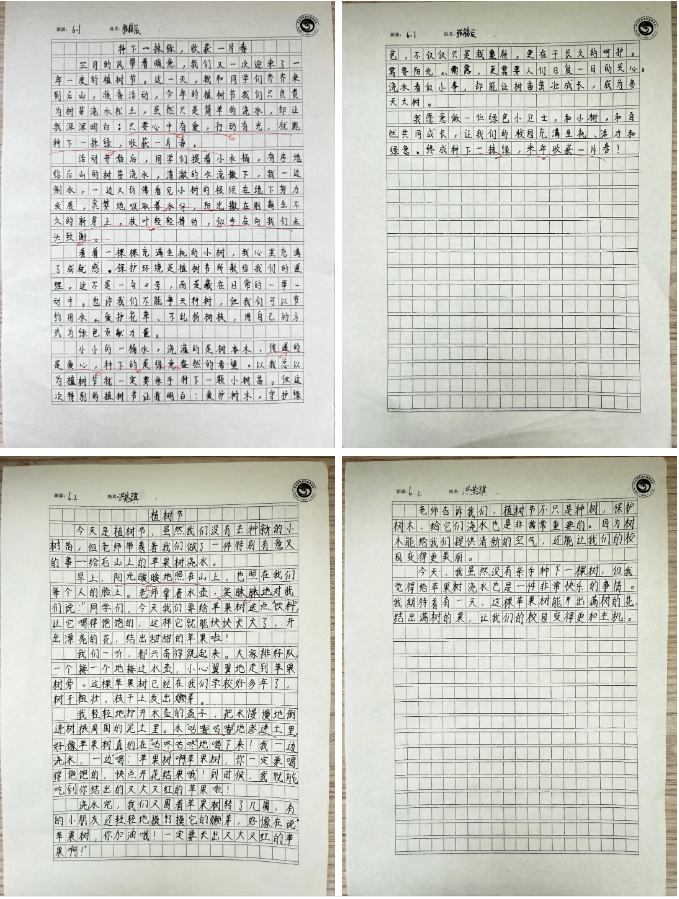 班级: 6.1 姓名:
种下一抹绿，收获一片春
三月的风带着暖意，我们又一次迎来了一
年一度的植树节。这一天，我和同学们齐齐来
到后山，准备活动，今年的植树节我们只负责
为树苗浇水松土，虽然只是简单的浇水，却让
我深深明白：只要心中有爱，行动有光，就能
种下一抹绿，收获一片春。
活动开始后，同学们提着小水桶，有序地
给后山的树苗浇水，清澈的水流撒下，我一边
倒水，一边又仿佛看见小树的根须在地下努力
发展，贪婪地吸取着水分，阳光撒在刚萌生不
久的新芽上，枝叶轻轻摇动，似乎在向我们点
头致谢。
看着一棵棵充满生机的小树，我心里充满
了成就感。保护环境是植树节所教给我们的道
理，这不是一句口号，而是藏在日常的一举一
动中。也许我们不能每天种树，但我们可以节
约用水、爱护花草、不乱折树枝，用自己的方
式为绿色贡献力量。
小小的一桶水，浇灌的是树苗木，传递的
是爱心，种下的是绿意盎然的希望。以我总以
为植树节就一定要亲手种下一颗小树苗。但这
次特别的植树节让我明白：爱护树木，守护绿
班级: 6.1 姓名:
色，不仅仅只是栽种，更在于长久的呵护。
需要阳光、雨露，更需要人们日复一日的关心。
浇水看似小事，却能让树苗茁壮成长，成为参
天大树。
我愿意做一位绿色小卫士，和小树，和自
然共同成长，让我们的校园充满生机、活力和
绿意。终成种下一抹绿，来年收获一片春！
班级: 6.2 姓名:
植树节
今天是植树节，虽然我们没有去种新的小
树苗，但老师带着我们做了一件特别有意义
的事—给后山上的苹果树浇水。
早上，阳光暖暖地照在山上，也照在我们
每个人的脸上。老师拿着水壶，笑眯眯地对我
们说“同学们，今天我们要给苹果树送点“饮料”
让它喝得饱饱的，这样它就能快快长大了，开
出漂亮的花，结出甜甜的苹果啦！
我们一听，都兴奋得跳起来。大家排好队，
一个接一个地接过水壶，小心翼翼地走到苹果
树旁。这棵苹果树已经在我们学校好多年了，
树干粗壮，枝干上发出嫩芽。
我轻轻地打开水壶的盖子，把水慢慢地倒
进树根周围的泥土里。水咕嘟咕嘟地渗进土里
好像苹果树真的在咕咚咕咚地喝下来！我一边
浇水，一边喝：苹果树啊苹果树，你一定要喝
得饱饱的，快点开花结果哦！到时候，我就能
吃到你结出的又大又红的苹果啦！
浇水完，我们又围着苹果树转了几圈，有
的小朋友还轻轻地摸了摸它的嫩芽，好像在说“
苹果树，你加油哦！一定要长出又大又红的苹
果啊！”
班级: 6.2 姓名:
老师告诉我们，植树节不只是种树，保护
树木、给它们浇水也是非常重要的。因为树
木能给我们提供清新的空气，还能让我们的校
园变得更美丽。
今天，我虽然没有亲手种下一棵树，但我
觉得给苹果树浇水也是一件非常快乐的事情。
我期待着有一天，这棵苹果树能开出满树的花，
结出满树的果，让我们的校园变得更有生机。